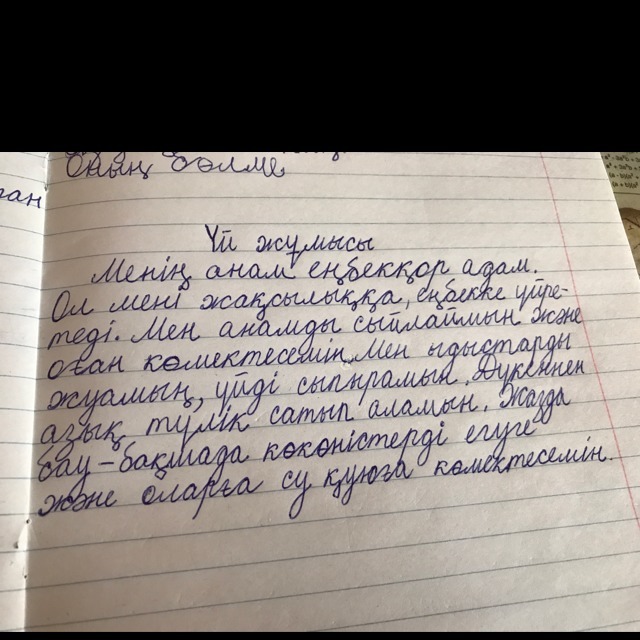 оның бөлме
ған
Үй жұмысы
Менің анам еңбекқор адам.
Ол мені жақсылыққа, еңбекке үйре-
теді. Мен анамды сыйлаймын және
оған көмектесемін. Мен ыдыстарды
жуамын, үйді сыпырамын. Дүкеннен
азық түлік сатып аламын. Жазда
бау-бақшада көкөністерді егуге
және оларға су құюға көмектесемін.